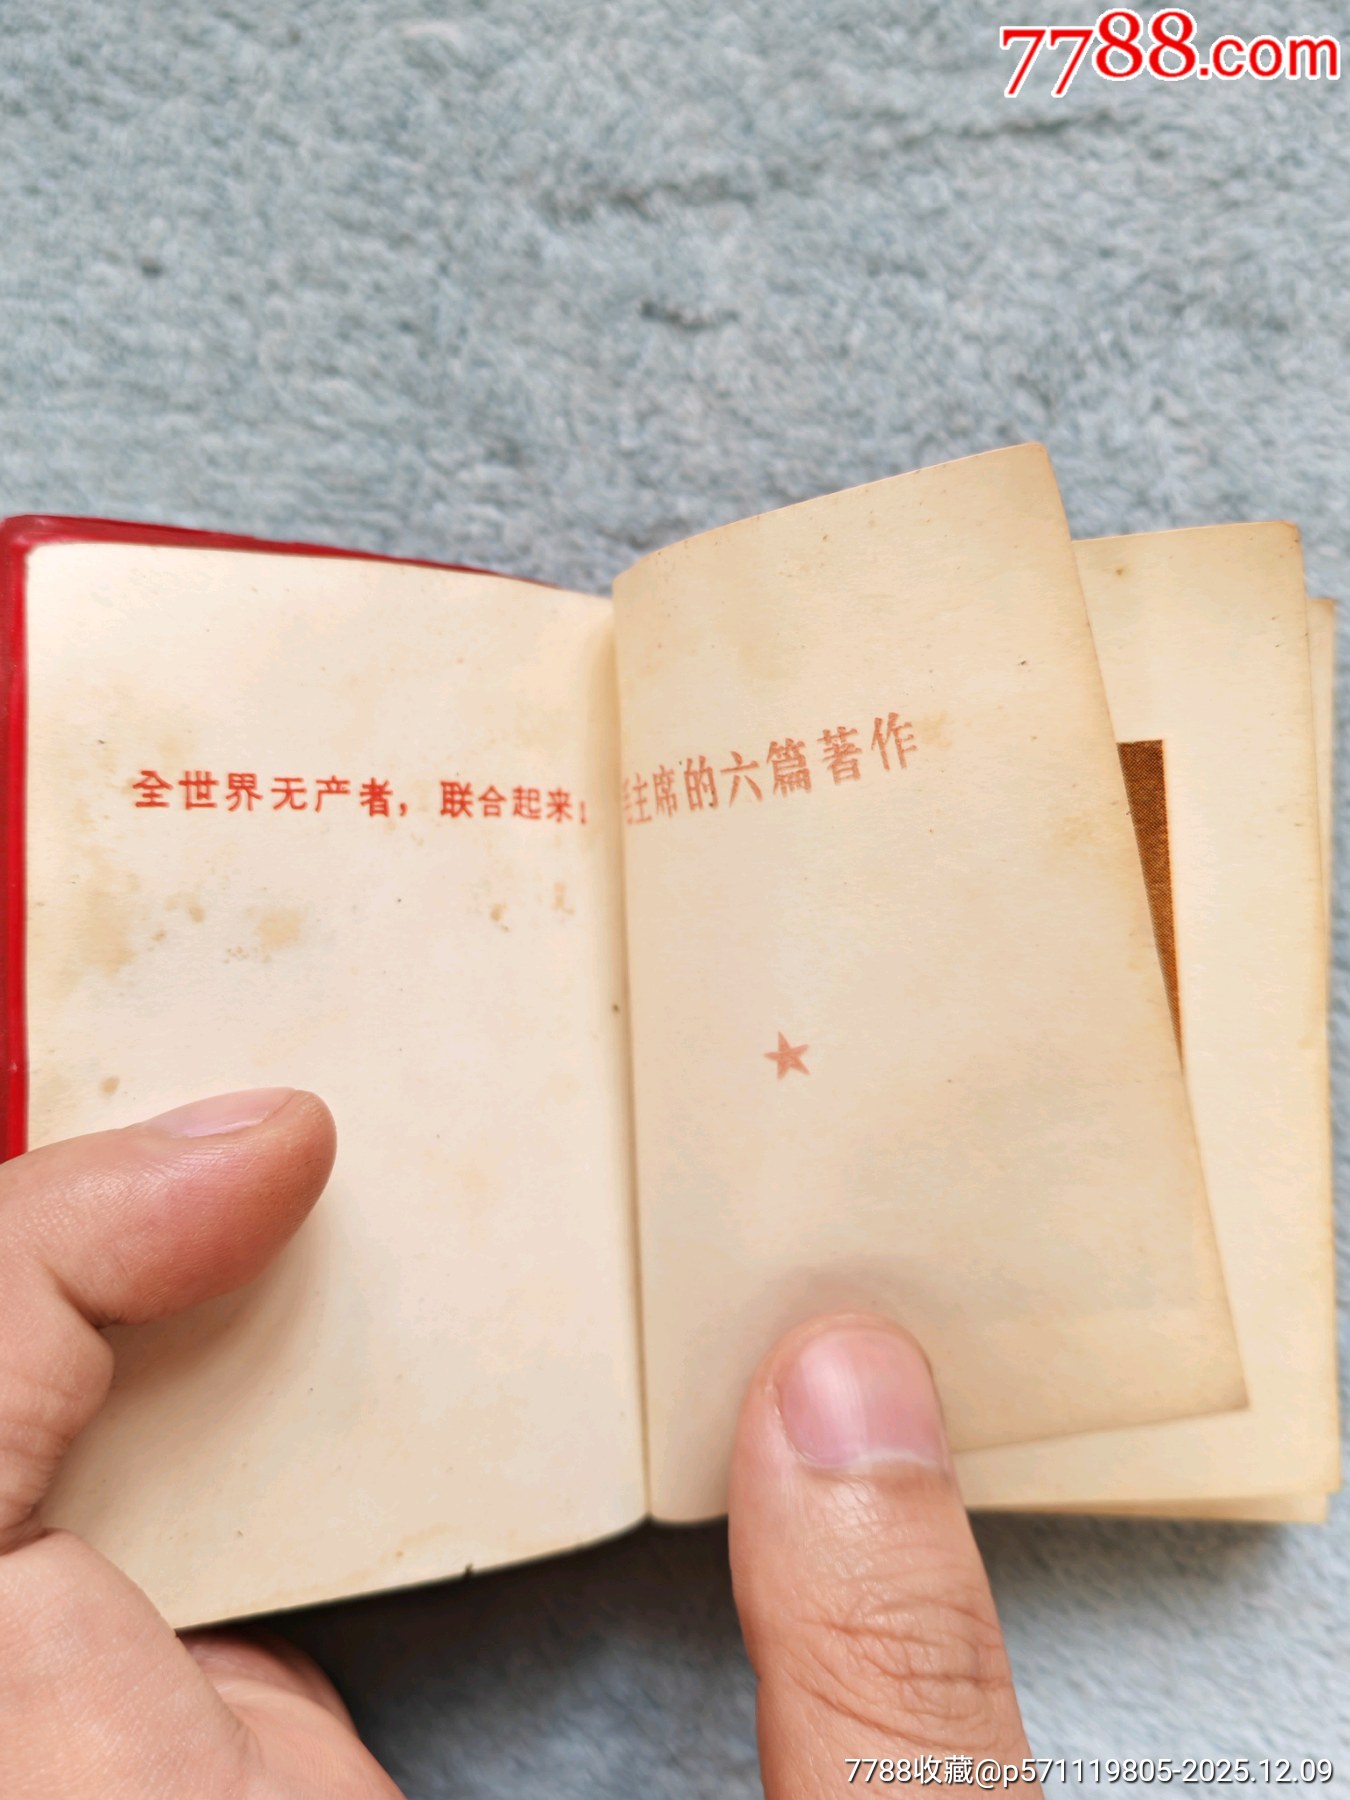 7788.com
全世界无产者，联合起来！
毛主席的六篇著作
7788收藏@p571119805-2025.12.09